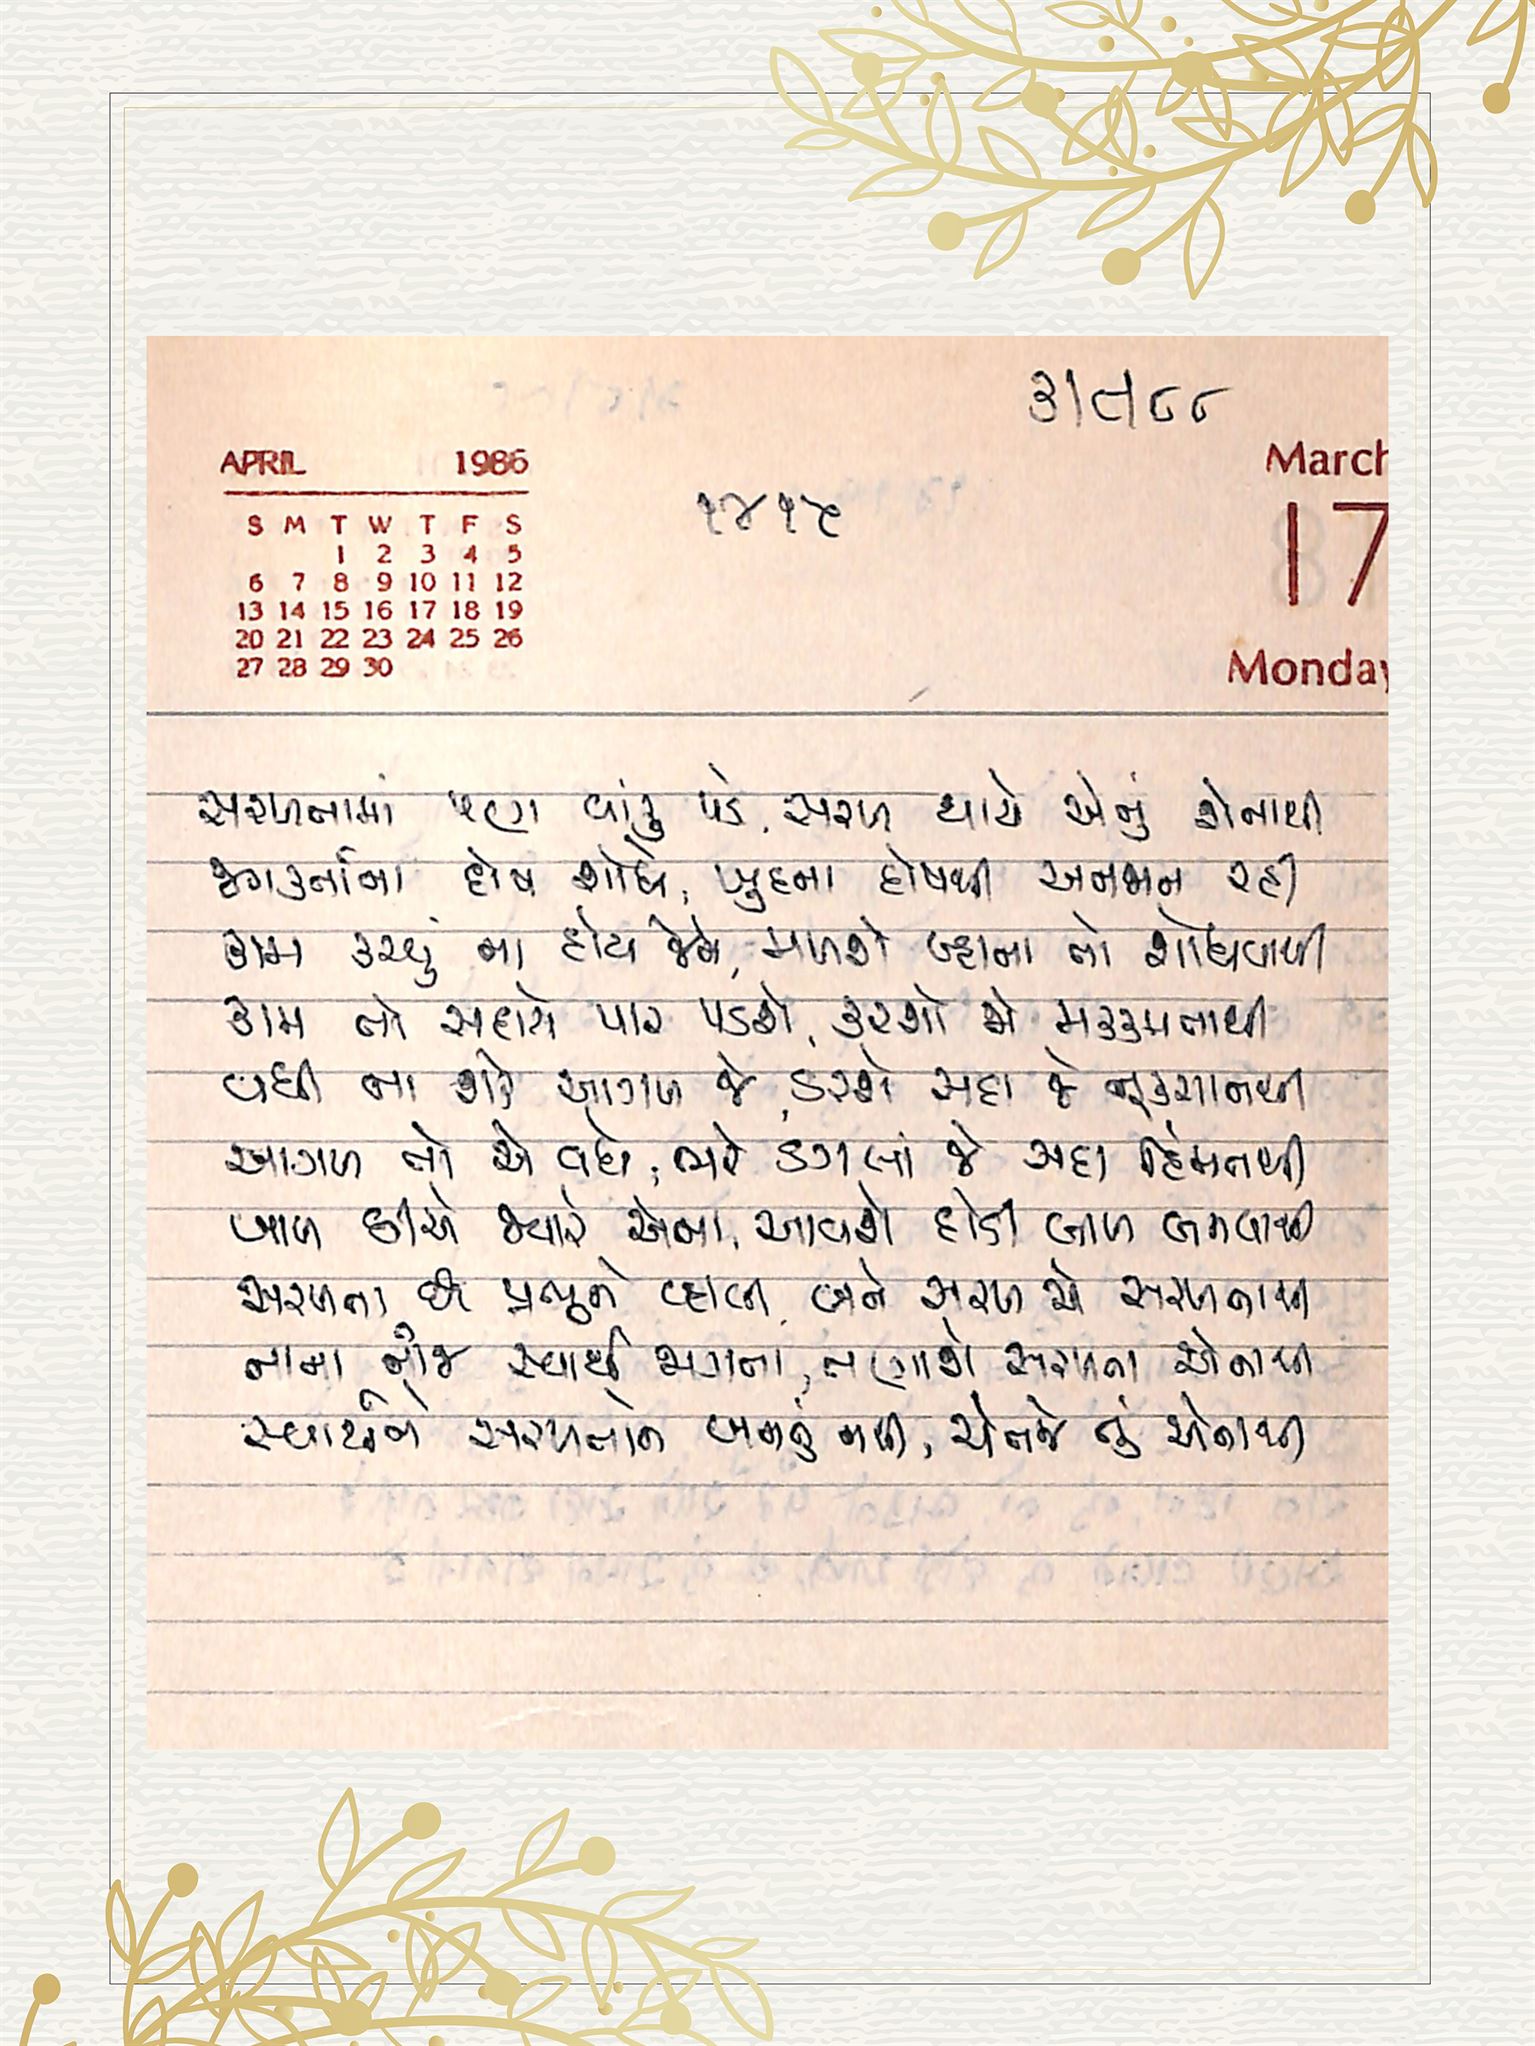 ૩।૮।૮૮
APRIL 1986
March
૧૪૧૯
S M T W T F S
1 2 3 4 5
6 7 8 9 10 11 12
13 14 15 16 17 18 19
20 21 22 23 24 25 26
27 28 29 30
17
Monday
સરળતામાં પણ વાંકુ પડે, સરળ થાયે એનું શેનાથી
જગકર્તાના દોષ શોધે, ખુદના દોષથી અનજાન રહી
કામ કરવું ના હોય જેને, મળશે બ્હાના તો શોધવાથી
કામ તો સદાયે પાર પડશે, કરશો જો મક્કમતાથી
વધી ના શકે આગળ જે, ડરશે સદા જે નૂકશાનથી
આગળ તો એ વધે, ભરે ડગલાં જે સદા હિંમતથી
બાળ છીએ જ્યારે એના, આવશે દોડી બાળ બનવાથી
સરળતા છે પ્રભુને વ્હાલી, બને સરળ એ સરળતાથી
નાના બીજ સ્વાર્થ ભગના, તણાશે સરળતા એનાથી
સ્વાર્થને સરળતાને બનતું નથી, ચેતજે તું એનાથી